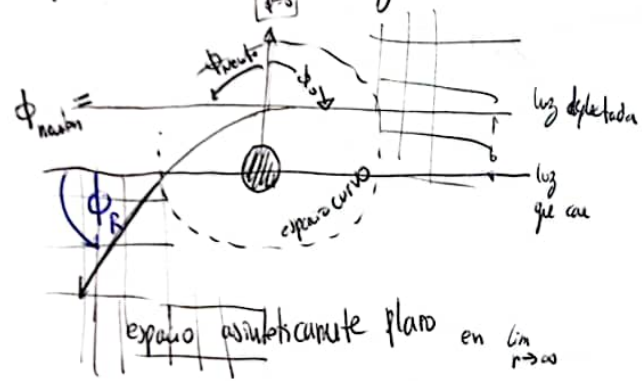 ϕ_Newton
ϕ_0
ϕ_newton =
luz deflectada
b
luz
que cae
ϕ_R
espacio curvo
espacio asintóticamente plano en lim
r→∞